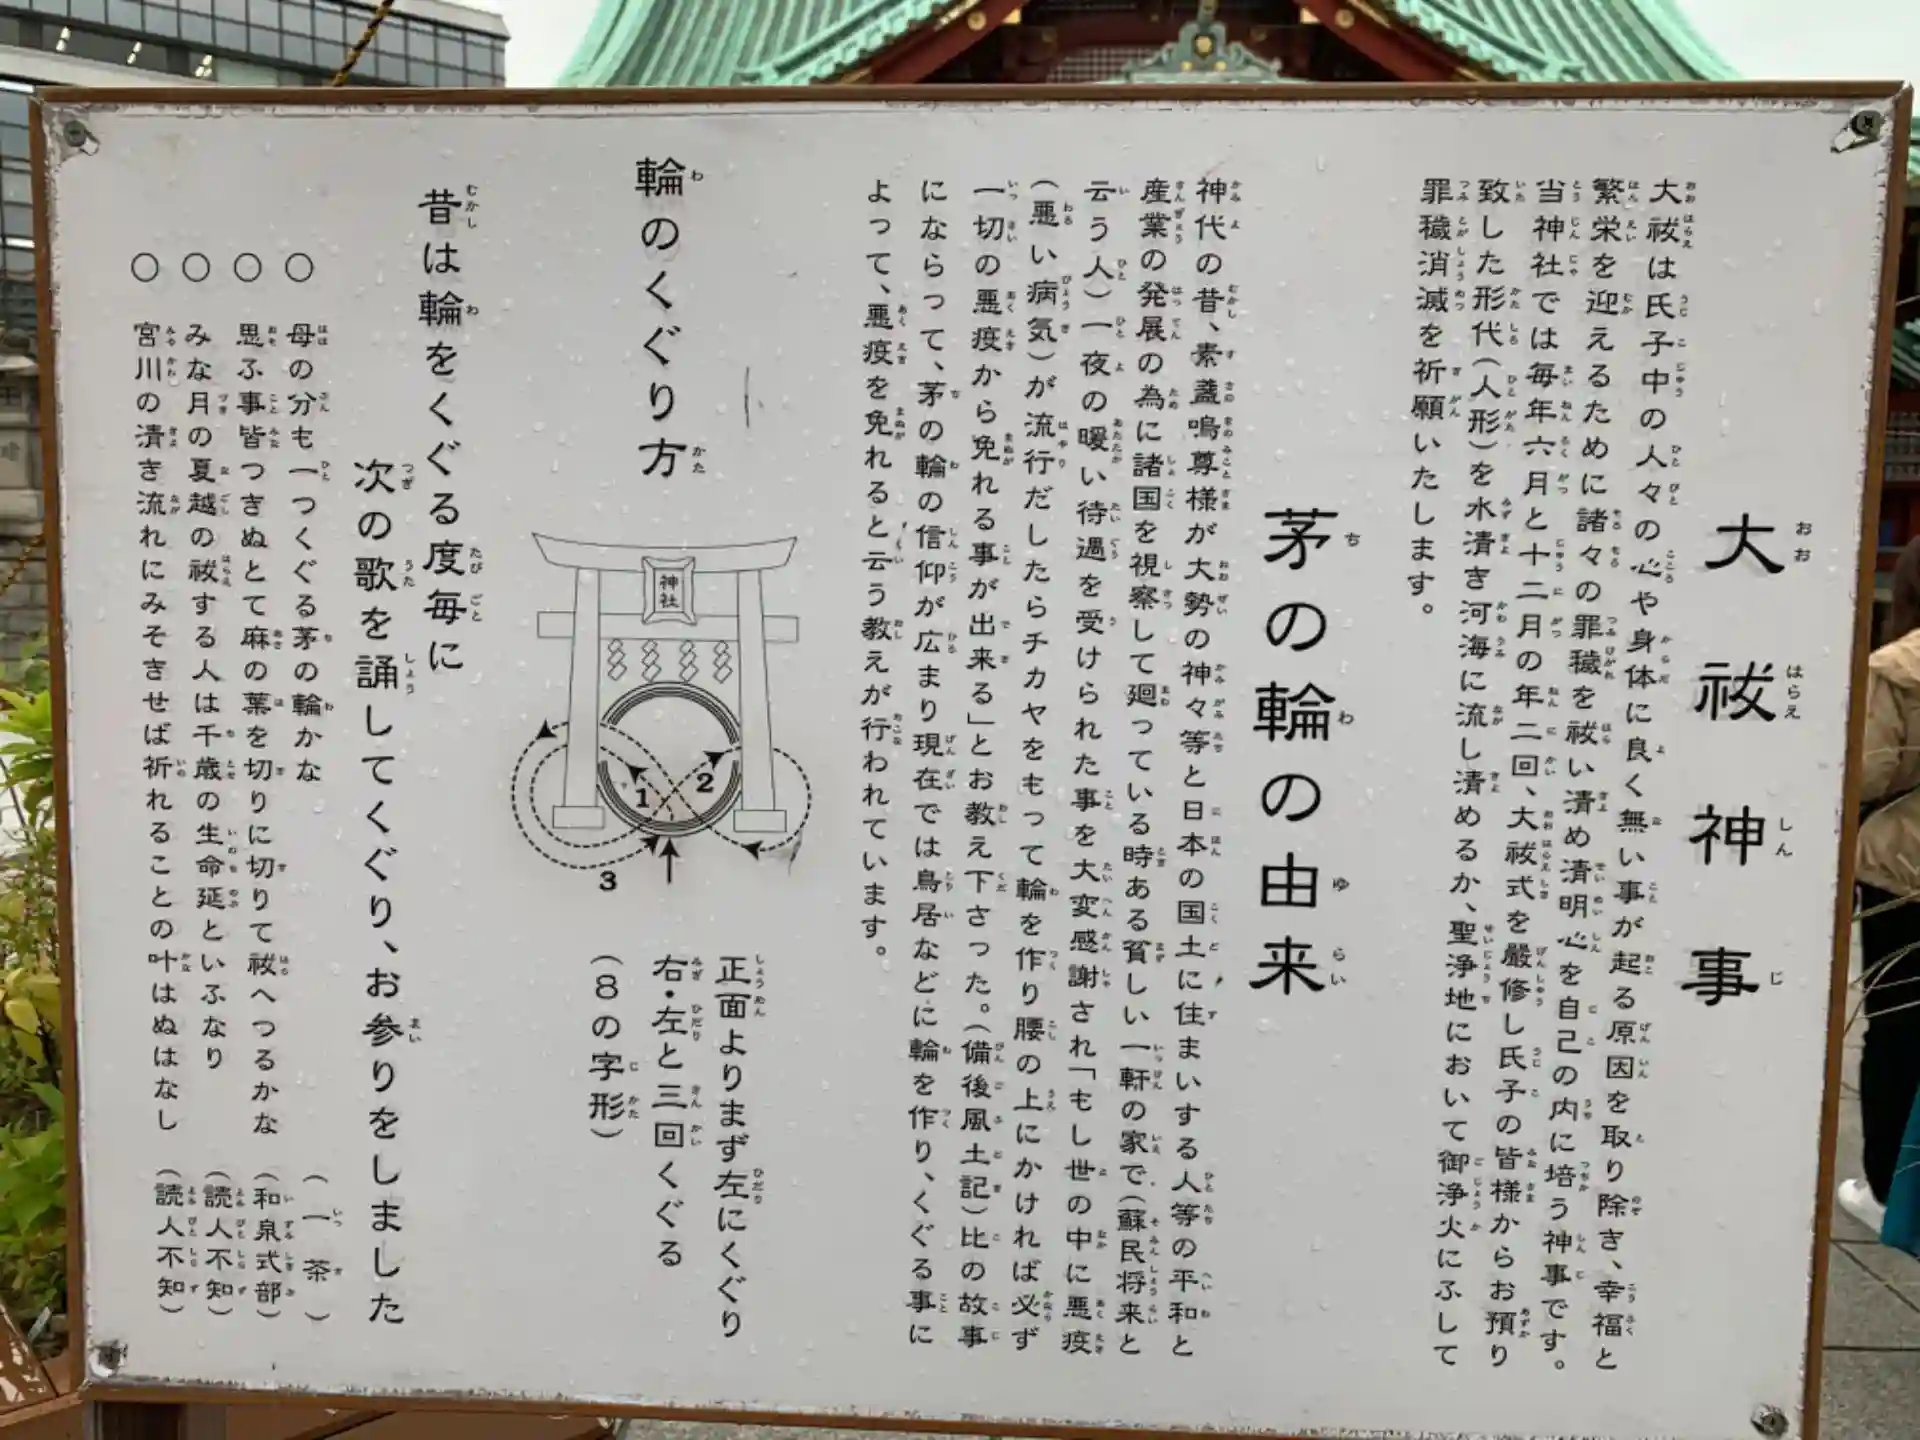 大祓神事
大祓は氏子中の人々の心や身体に良く無い事が起る原因を取り除き、幸福と
繁栄を迎えるために諸々の罪穢を祓い清め清明心を自己の内に培う神事です。
当神社では毎年六月と十二月の年二回、大祓式を厳修し氏子の皆様からお預り
致した形代(人形)を水清き河海に流し清めるか、聖浄地において御浄火にふして
罪穢消滅を祈願いたします。
茅の輪の由来
神代の昔、素盞鳴尊様が大勢の神々等と日本の国土に住まいする人等の平和と
産業の発展の為に諸国を視察して廻っている時ある貧しい一軒の家で(蘇民将来と
云う人)一夜の暖い待遇を受けられた事を大変感謝され「もし世の中に悪疫
(悪い病気)が流行だしたらチカヤをもって輪を作り腰の上にかければ必ず
一切の悪疫から免れる事が出来る」とお教え下さった。(備後風土記)比の故事
にならって、茅の輪の信仰が広まり現在では鳥居などに輪を作り、くぐる事に
よって、悪疫を免れると云う教えが行われています。
輪のくぐり方
神社
1
2
3
正面よりまず左にくぐり
右・左と三回くぐる
(8の字形)
昔は輪をくぐる度毎に
次の歌を誦してくぐり、お参りをしました
○ 母の分も一つくぐる茅の輪かな (一茶)
○ 思ふ事皆つきぬとて麻の葉を切りに切りて祓へつるかな (和泉式部)
○ みな月の夏越の祓する人は千歳の生命延といふなり (読人不知)
○ 宮川の清き流れにみそきせば祈れることの叶はぬはなし (読人不知)